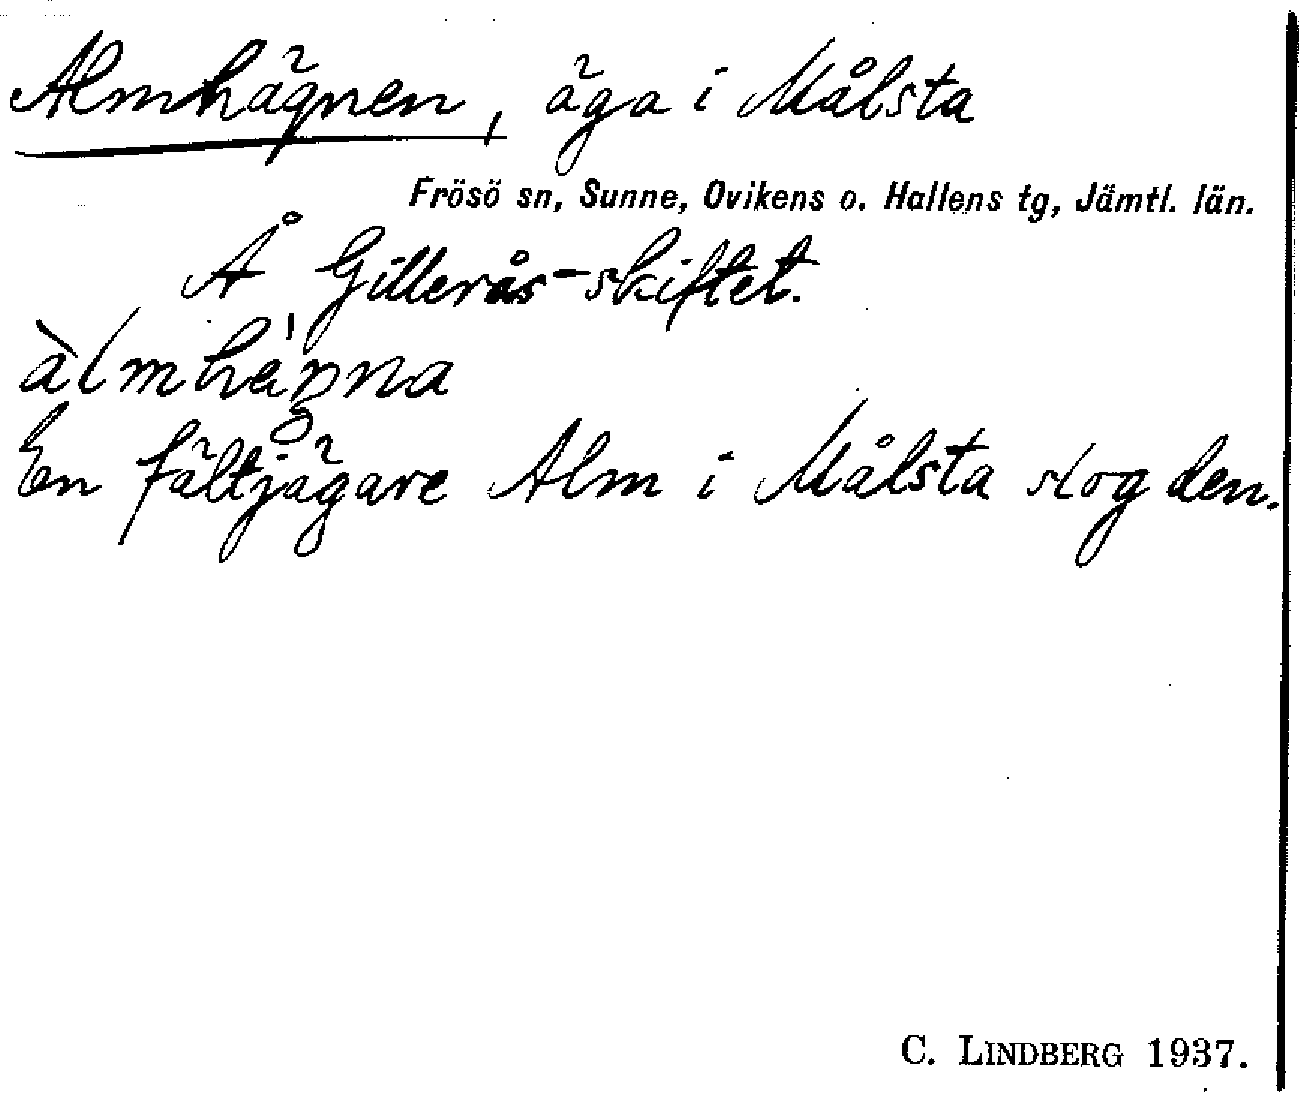 Almhägnen, äga i Målsta
Frösö sn, Sunne, Ovikens o. Hallens tg, Jämtl. län.
Å Gillerås-skiftet.
En fältjägare Alm i Målsta slog den.
C. LINDBERG 1937.